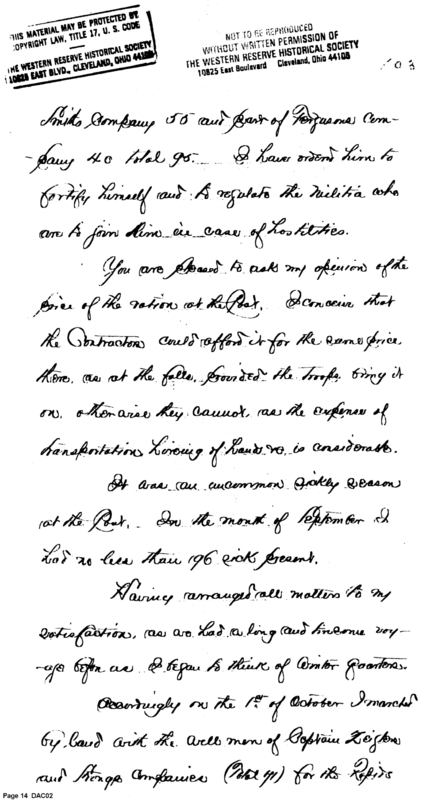 THIS MATERIAL MAY BE PROTECTED BY
COPYRIGHT LAW, TITLE 17, U. S. CODE
THE WESTERN RESERVE HISTORICAL SOCIETY
10825 EAST BLVD., CLEVELAND, OHIO 44106
NOT TO BE REPRODUCED
WITHOUT WRITTEN PERMISSION OF
THE WESTERN RESERVE HISTORICAL SOCIETY
10825 East Boulevard Cleveland, Ohio 44106
Smiths Company 55 and part of Fergusons Com-
pany 40 total 95. I have orderd him to
fortify himself and to regulate the Militia who
are to join him in case of hostilities.
You are pleased to ask my opinion of the
price of the ration at the Post. I conceive that
the Contractors could afford it for the same price
there, as at the falls, provided the troops bring it
on, otherwise they cannot, as the expense of
transportation hireing of hands &c. is considerable.
It was an uncommon sickly season
at the Post. In the month of September I
had no less than 196 sick present.
Having arranged all matters to my
satisfaction, as we had a long and tiresome voy-
age before us I began to think of winter quarters.
Accordingly on the 1st of October I marched
by land with the well men of Captain Zeigler
and Strongs Companies (total 71) for the Rapids
Page 14 DAC02